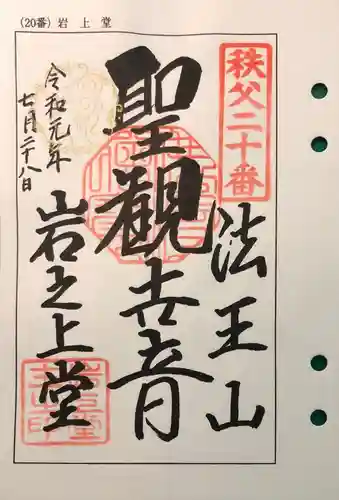 (20番) 岩 上 堂
秩父二十番
法王山
聖観世音
岩之上堂
令和元年
七月二十八日